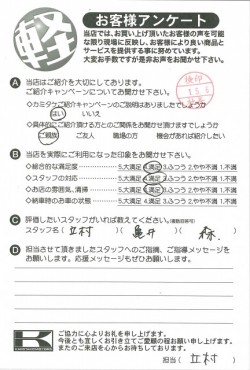 軽
お客様アンケート
当店では、お買い上げ頂いたお客様の声を可能
な限り現場に反映し、お客様により良い商品と
サービスを提供する事に努めています。
大変お手数ですが是非お声をお聞かせ下さい。
検印
A 当店はご紹介を大切にしております。
ご紹介キャンペーンについてお聞かせ下さい。
◇カミタケご紹介キャンペーンのご説明はありましたでしょうか
はい いいえ
◇具体的にご紹介頂ける方とのご関係をお聞かせ頂けますでしょうか
ご親族 ご友人 職場の方 機会があれば紹介したい
B 当店を実際にご利用になった印象をお聞かせ下さい。
◇総合的な満足度 5.大満足 4.満足 3.ふつう 2.やや不満 1.不満
◇スタッフの対応 5.大満足 4.満足 3.ふつう 2.やや不満 1.不満
◇お店の雰囲気、清掃 5.大満足 4.満足 3.ふつう 2.やや不満 1.不満
◇納車時のお車の状態 5.大満足 4.満足 3.ふつう 2.やや不満 1.不満
C 評価したいスタッフがいれば教えてください。(複数回答可)
スタッフ名( 立村 )( 亀井 )( )
D 担当させて頂きましたスタッフへのご指摘、ご指導メッセージを
お願いします。応援メッセージもぜひお願いします。
K
ご協力に心よりお礼を申し上げます。
今後とも宜しくお引き立てご愛顧の程お願い申し上げます。
またのご来店を心からお待ちしております。
担当( 立村 )